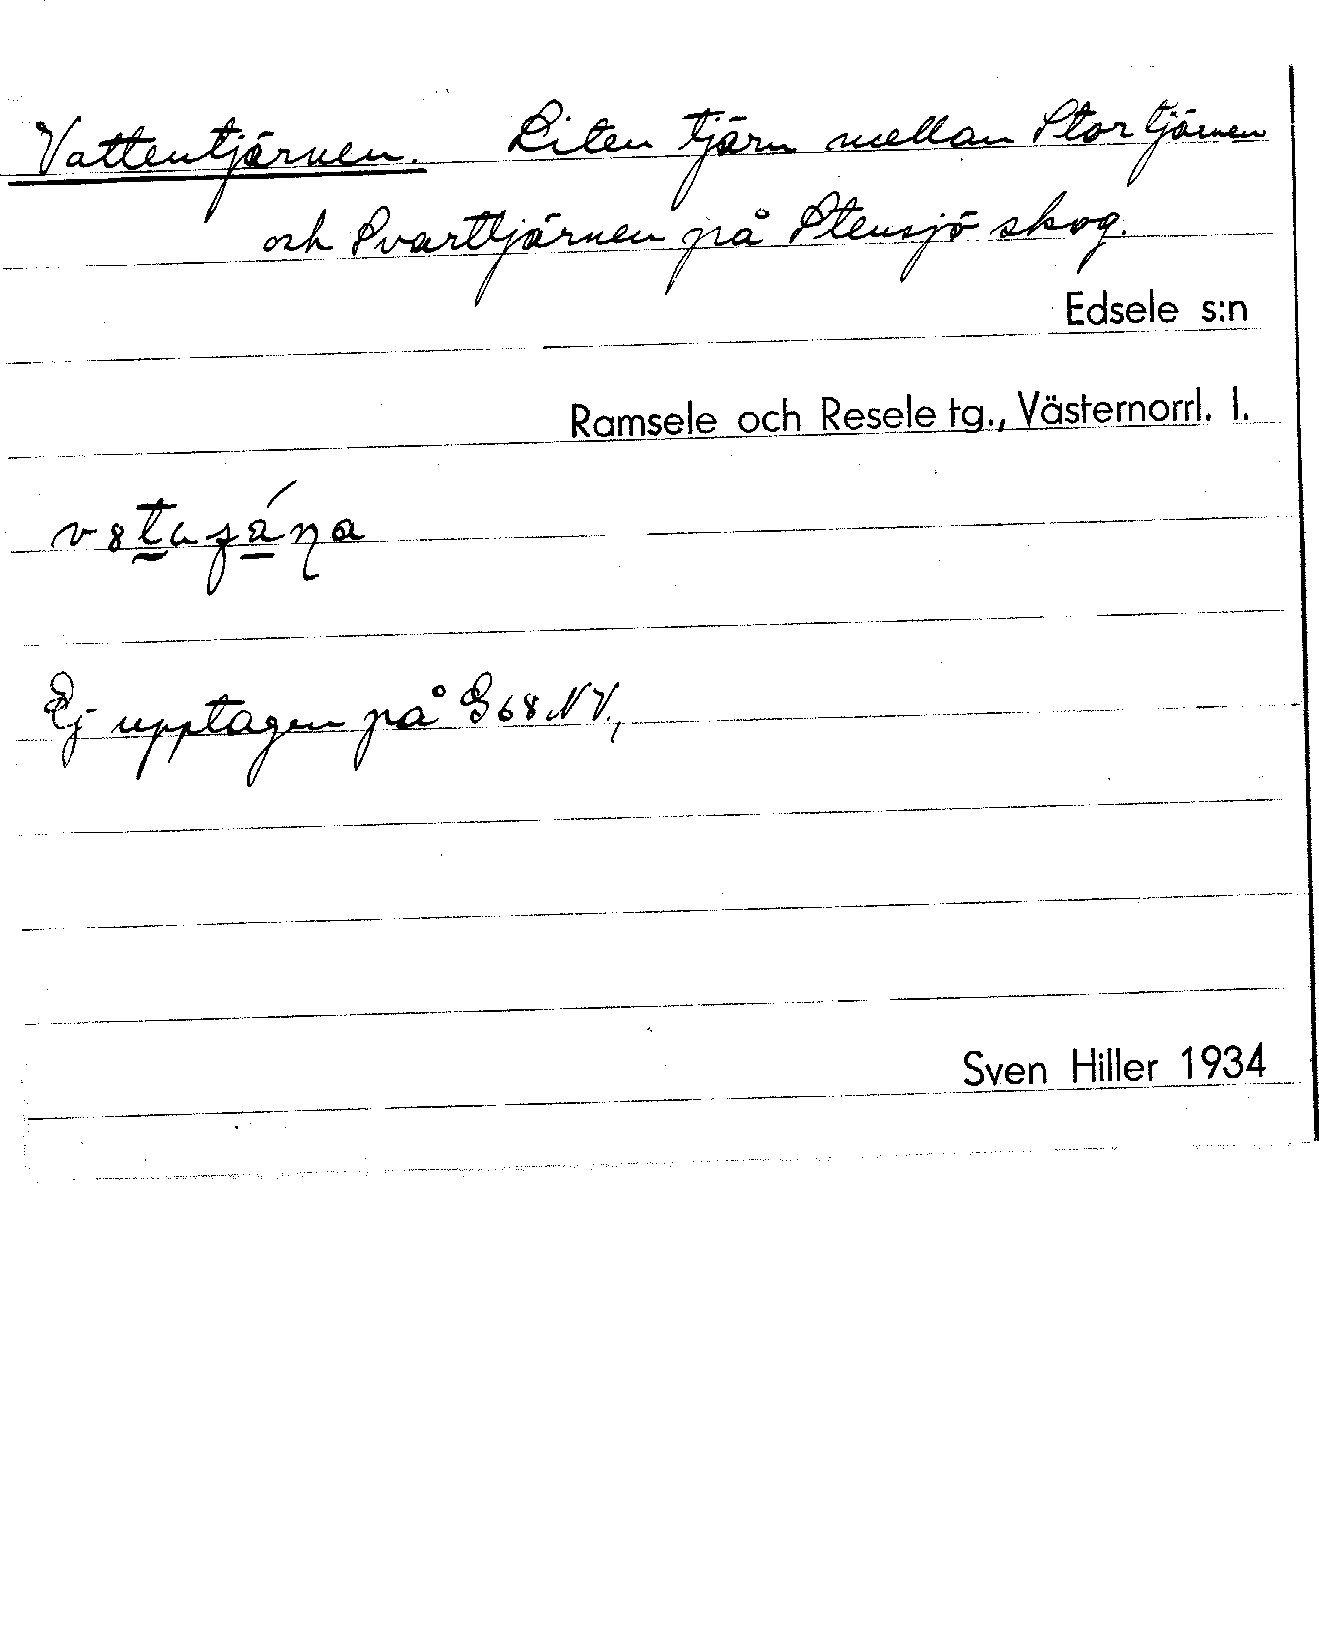 Vattentjärnen. Liten tjärn mellan Stortjärnen
och Svarttjärnen på Stensjö skog.
Edsele s:n
Ramsele och Resele tg., Västernorrl. l.
Ej upptagen på G68NV.,
Sven Hiller 1934